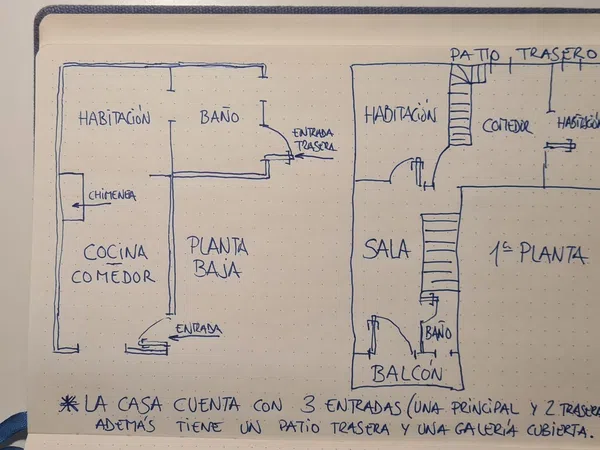 PATIO TRASERO
HABITACIÓN
BAÑO
ENTRADA
TRASERA
CHIMENEA
COCINA
COMEDOR
PLANTA
BAJA
ENTRADA
HABITACIÓN
COMEDOR
HABITACIÓN
SALA
1ª PLANTA
BAÑO
BALCÓN
* LA CASA CUENTA CON 3 ENTRADAS (UNA PRINCIPAL Y 2 TRASERA
ADEMÁS TIENE UN PATIO TRASERA Y UNA GALERÍA CUBIERTA.